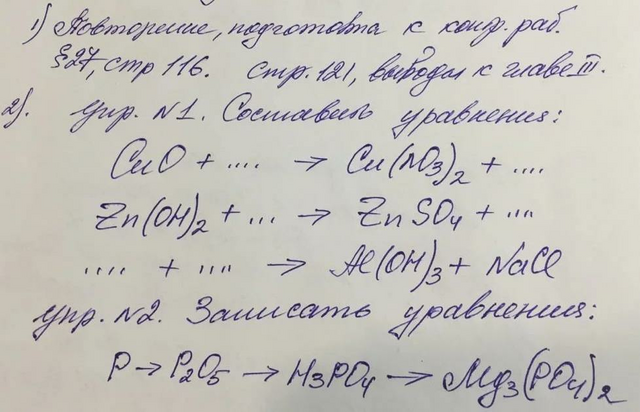 1) Повторение, подготовка к контр. раб.
§27, стр 116. стр. 121, выводы к главе III.
2). Упр. №1. Составить уравнения:
CuO + .... → Cu(NO3)2 + ....
Zn(OH)2 + ... → ZnSO4 + ....
.... + .... → Al(OH)3 + NaCl
Упр. №2. Записать уравнения:
P → P2O5 → H3PO4 → Mg3(PO4)2